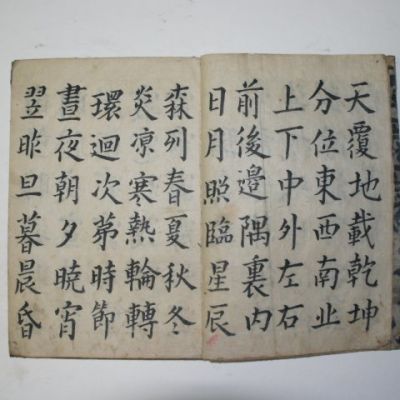 天覆地載乾坤
分位東西南北
上下中外左右
前後邊隅裏內
日月照臨星辰
森列春夏秋冬
炎凉寒熱輪轉
環迴次第時節
晝夜朝夕曉宵
翌昨旦暮晨昏